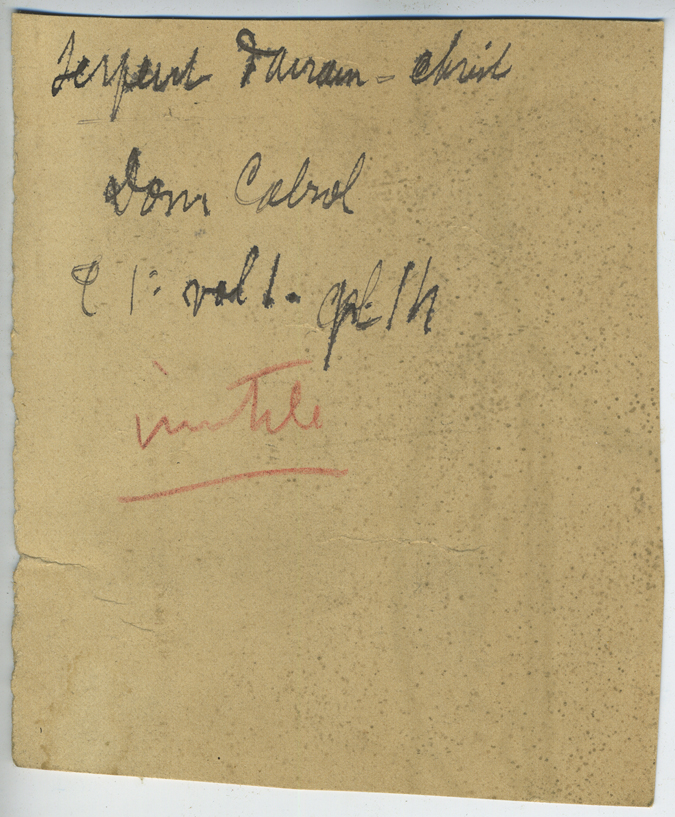 Serpent Dairain - Christ
Dom Cabrol
T 1: vol 1.
inutile